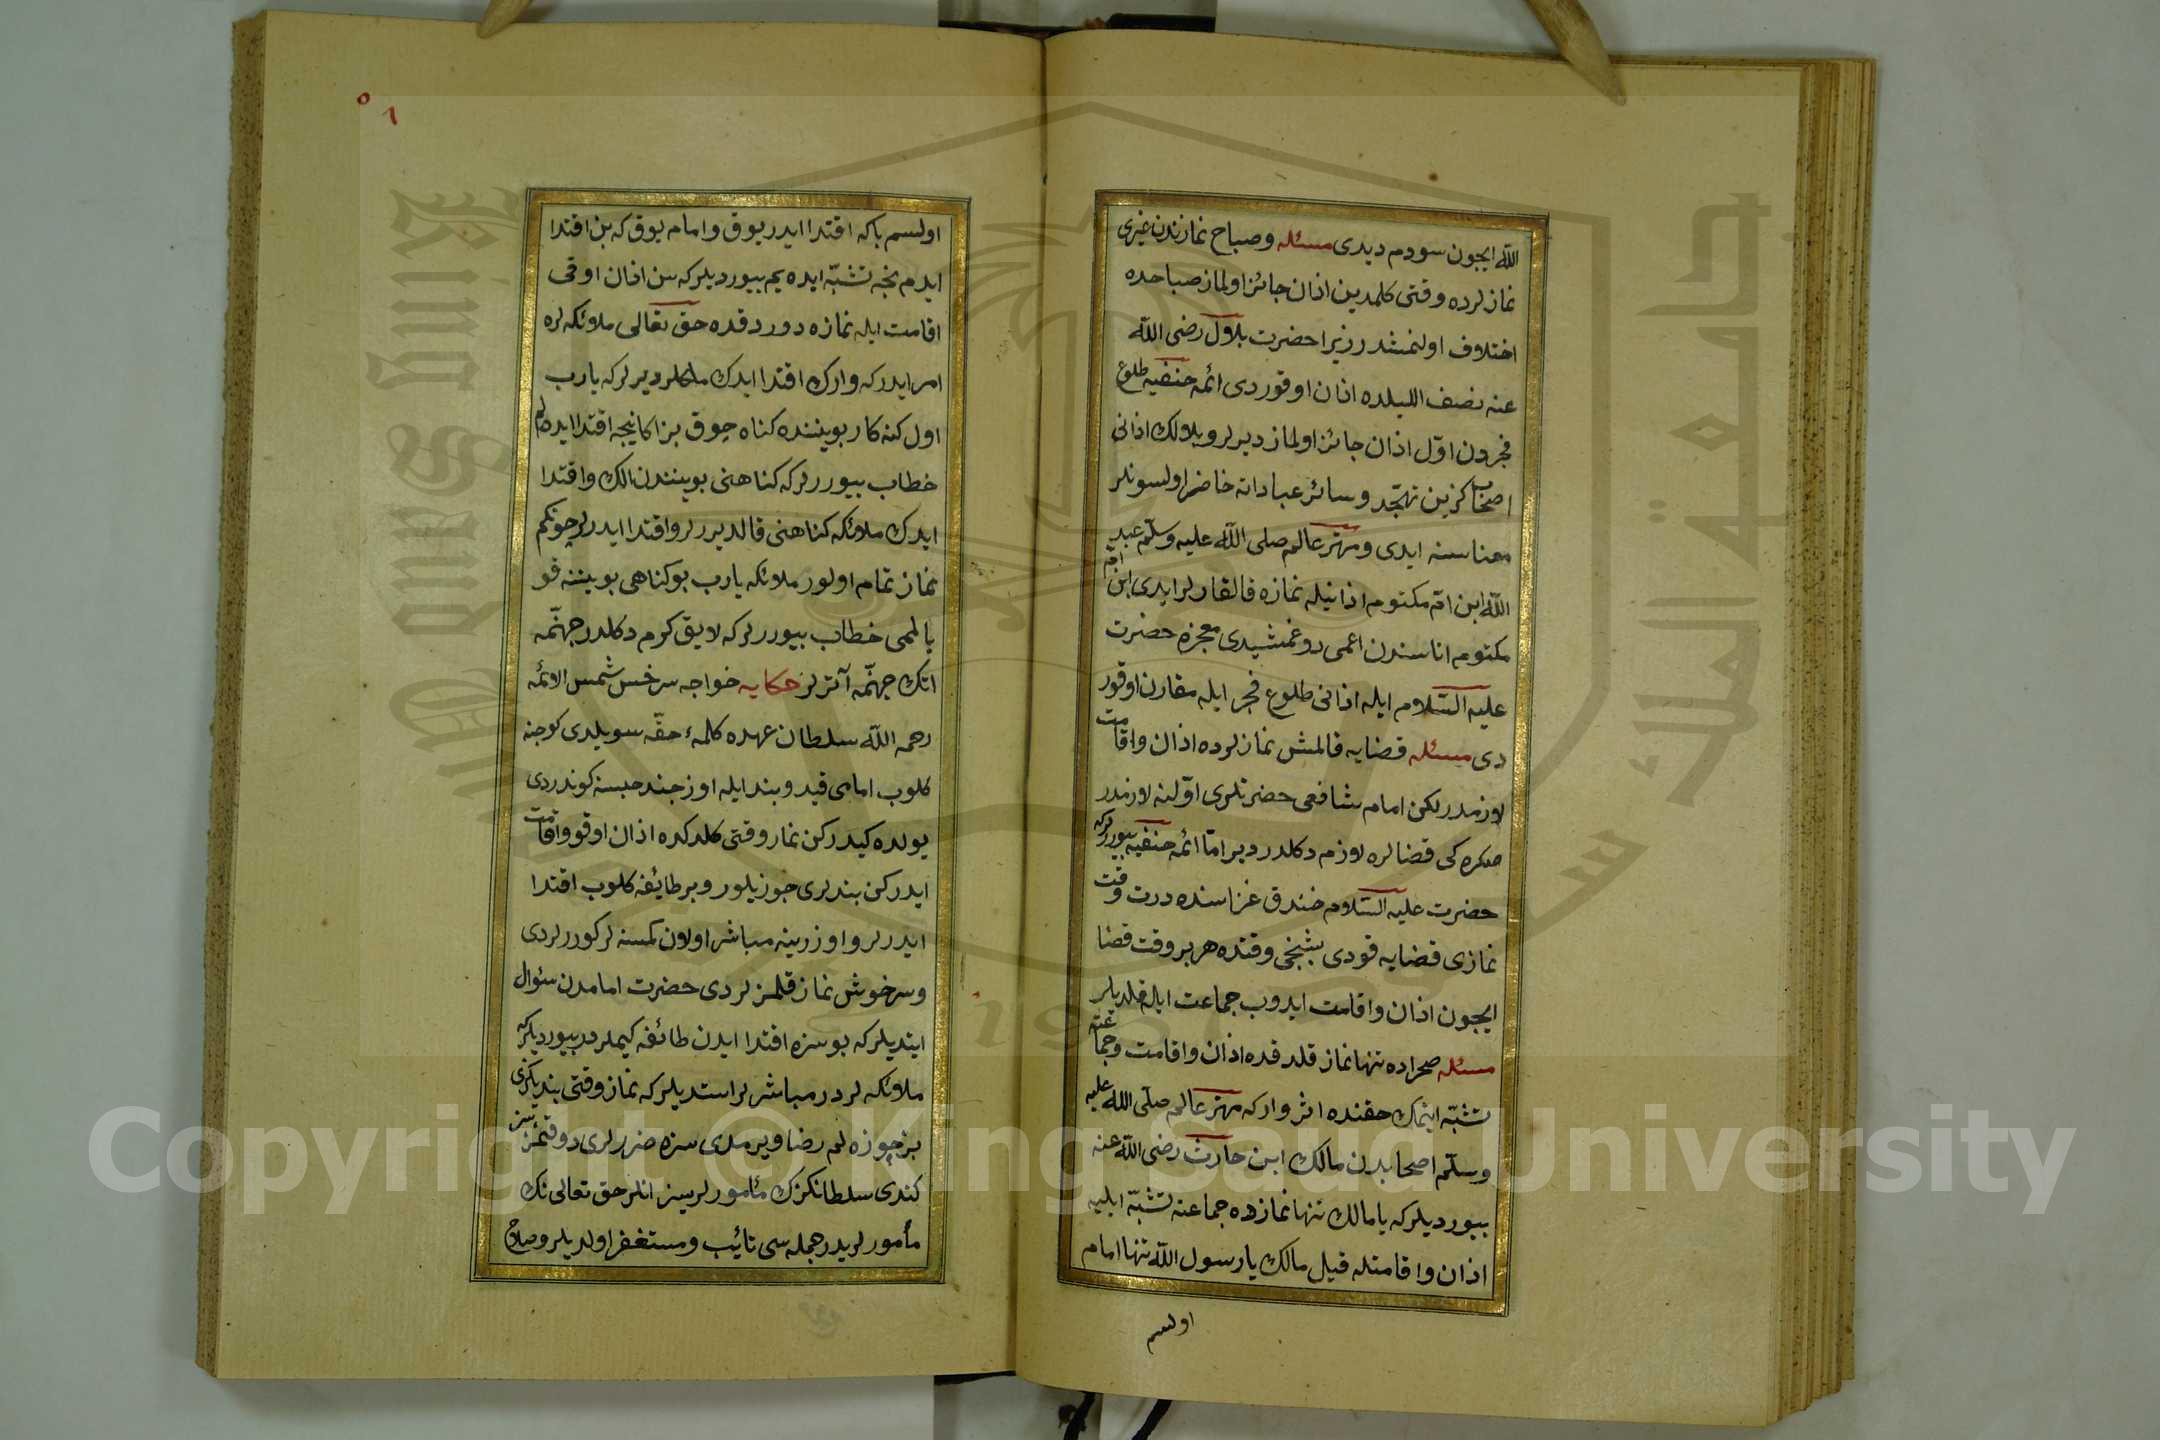 الله ایچون سودم دیدی مسئله و صباح نمازندن غیری
نمازلرده وقتی کلمدین اذان جائز اولماز صباحده
اختلاف اولنمشدر زیرا حضرت بلال رضی الله
عنه نصف اللیلده اذان اوقوردی ائمه حنفیه طلوع
فجردن اوّل اذان جائز اولماز دیرلر و بلالک اذانی
اصحاب کزین تهجّد و سائر عباداته حاضر اولسونلر
معناسنه ایدی و مهتر عالم صلی الله علیه وسلّم عبد
الله ابن امّ مکتوم اذانیله نمازه قالقارلر ایدی ابن امّ
مکتوم اناسندن اعمی دوغمشیدی معجزه حضرت
علیه السّلام ایله اذانی طلوع فجر ایله مقارن اوقور
دی مسئله قضایه قالمش نمازلرده اذان واقامت
لازمدر لکن امام شافعی حضرتلری اوّلنه لازمدر
صکره کی قضالره لازم دکلدر دیر امّا ائمه حنفیه بیوررلرکه
حضرت علیه السّلام خندق غزاسنده درت وقت
نمازی قضایه قودی بشنجی وقتده هر بر وقت قضا
ایچون اذان واقامت ایدوب جماعت ایله قلدیلر
مسئله صحراده تنها نماز قلدقده اذان واقامت وجماعته
تشبّه ایتمک حقنده اثر وارکه مهتر عالم صلّی الله علیه
وسلّم اصحابدن مالک ابن حارث رضی الله عنه
بیوردیلرکه یا مالک تنها نمازده جماعته تشبّه ایلیه
اذان واقامتله قیل مالک یا رسول الله تنها امام
اولسم
٥١
اولسم باکه اقتدا ایدر یوق وامام یوق که بن اقتدا
ایدم نجه تشبّه ایده یم بیوردیلرکه سن اذان اوقی
اقامت ایله نمازه دوردقده حق تعالی ملائکه لره
امر ایدرکه وارک اقتدا ایدک ملکلر دیرلرکه یارب
اول کنه کار بویننده کناه چوق بز اکا نیجه اقتدا ایده لم
خطاب بیوررلرکه کناهنی بوینندن الک واقتدا
ایدک ملائکه کناهنی قالدیررلر واقتدا ایدرلر چونکم
نماز تمام اولور ملائکه یارب بو کناهی بویننه قو
یالممی خطاب بیوررلرکه لایق کرم دکلدر جهنّمه
اتک جهنّمه آترلر حکایه خواجه سرخس شمس الائمّه
رحمه الله سلطان عهده کلمهٔ حقّه سویلدی کوجنه
کلوب امامی قید و بند ایله اوزجند حبسنه کوندردی
یولده کیدرکن نماز وقتی کلدکده اذان اوقو واقامت
ایدرکن بندلری چوزیلور و بر طایٔفه کلوب اقتدا
ایدرلر و اوزرینه مباشر اولان کمسنه لر کوررلردی
وسرخوش نماز قلمزلردی حضرت امامدن سئوال
ایتدیلرکه بو سزه اقتدا ایدن طائفه کیملردر بیوردیلرکه
ملائکه لردر مباشرلر استدیلرکه نماز وقتی بندیکزی
بز چوزه لم رضا ویرمدی سزه ضررلری دوقنمز سز
کندی سلطانکزک مٔامورلریسز انلر حق تعالی نک
مأمورلریدر جمله سی تائب و مستغفر اولدیلر وصلاح